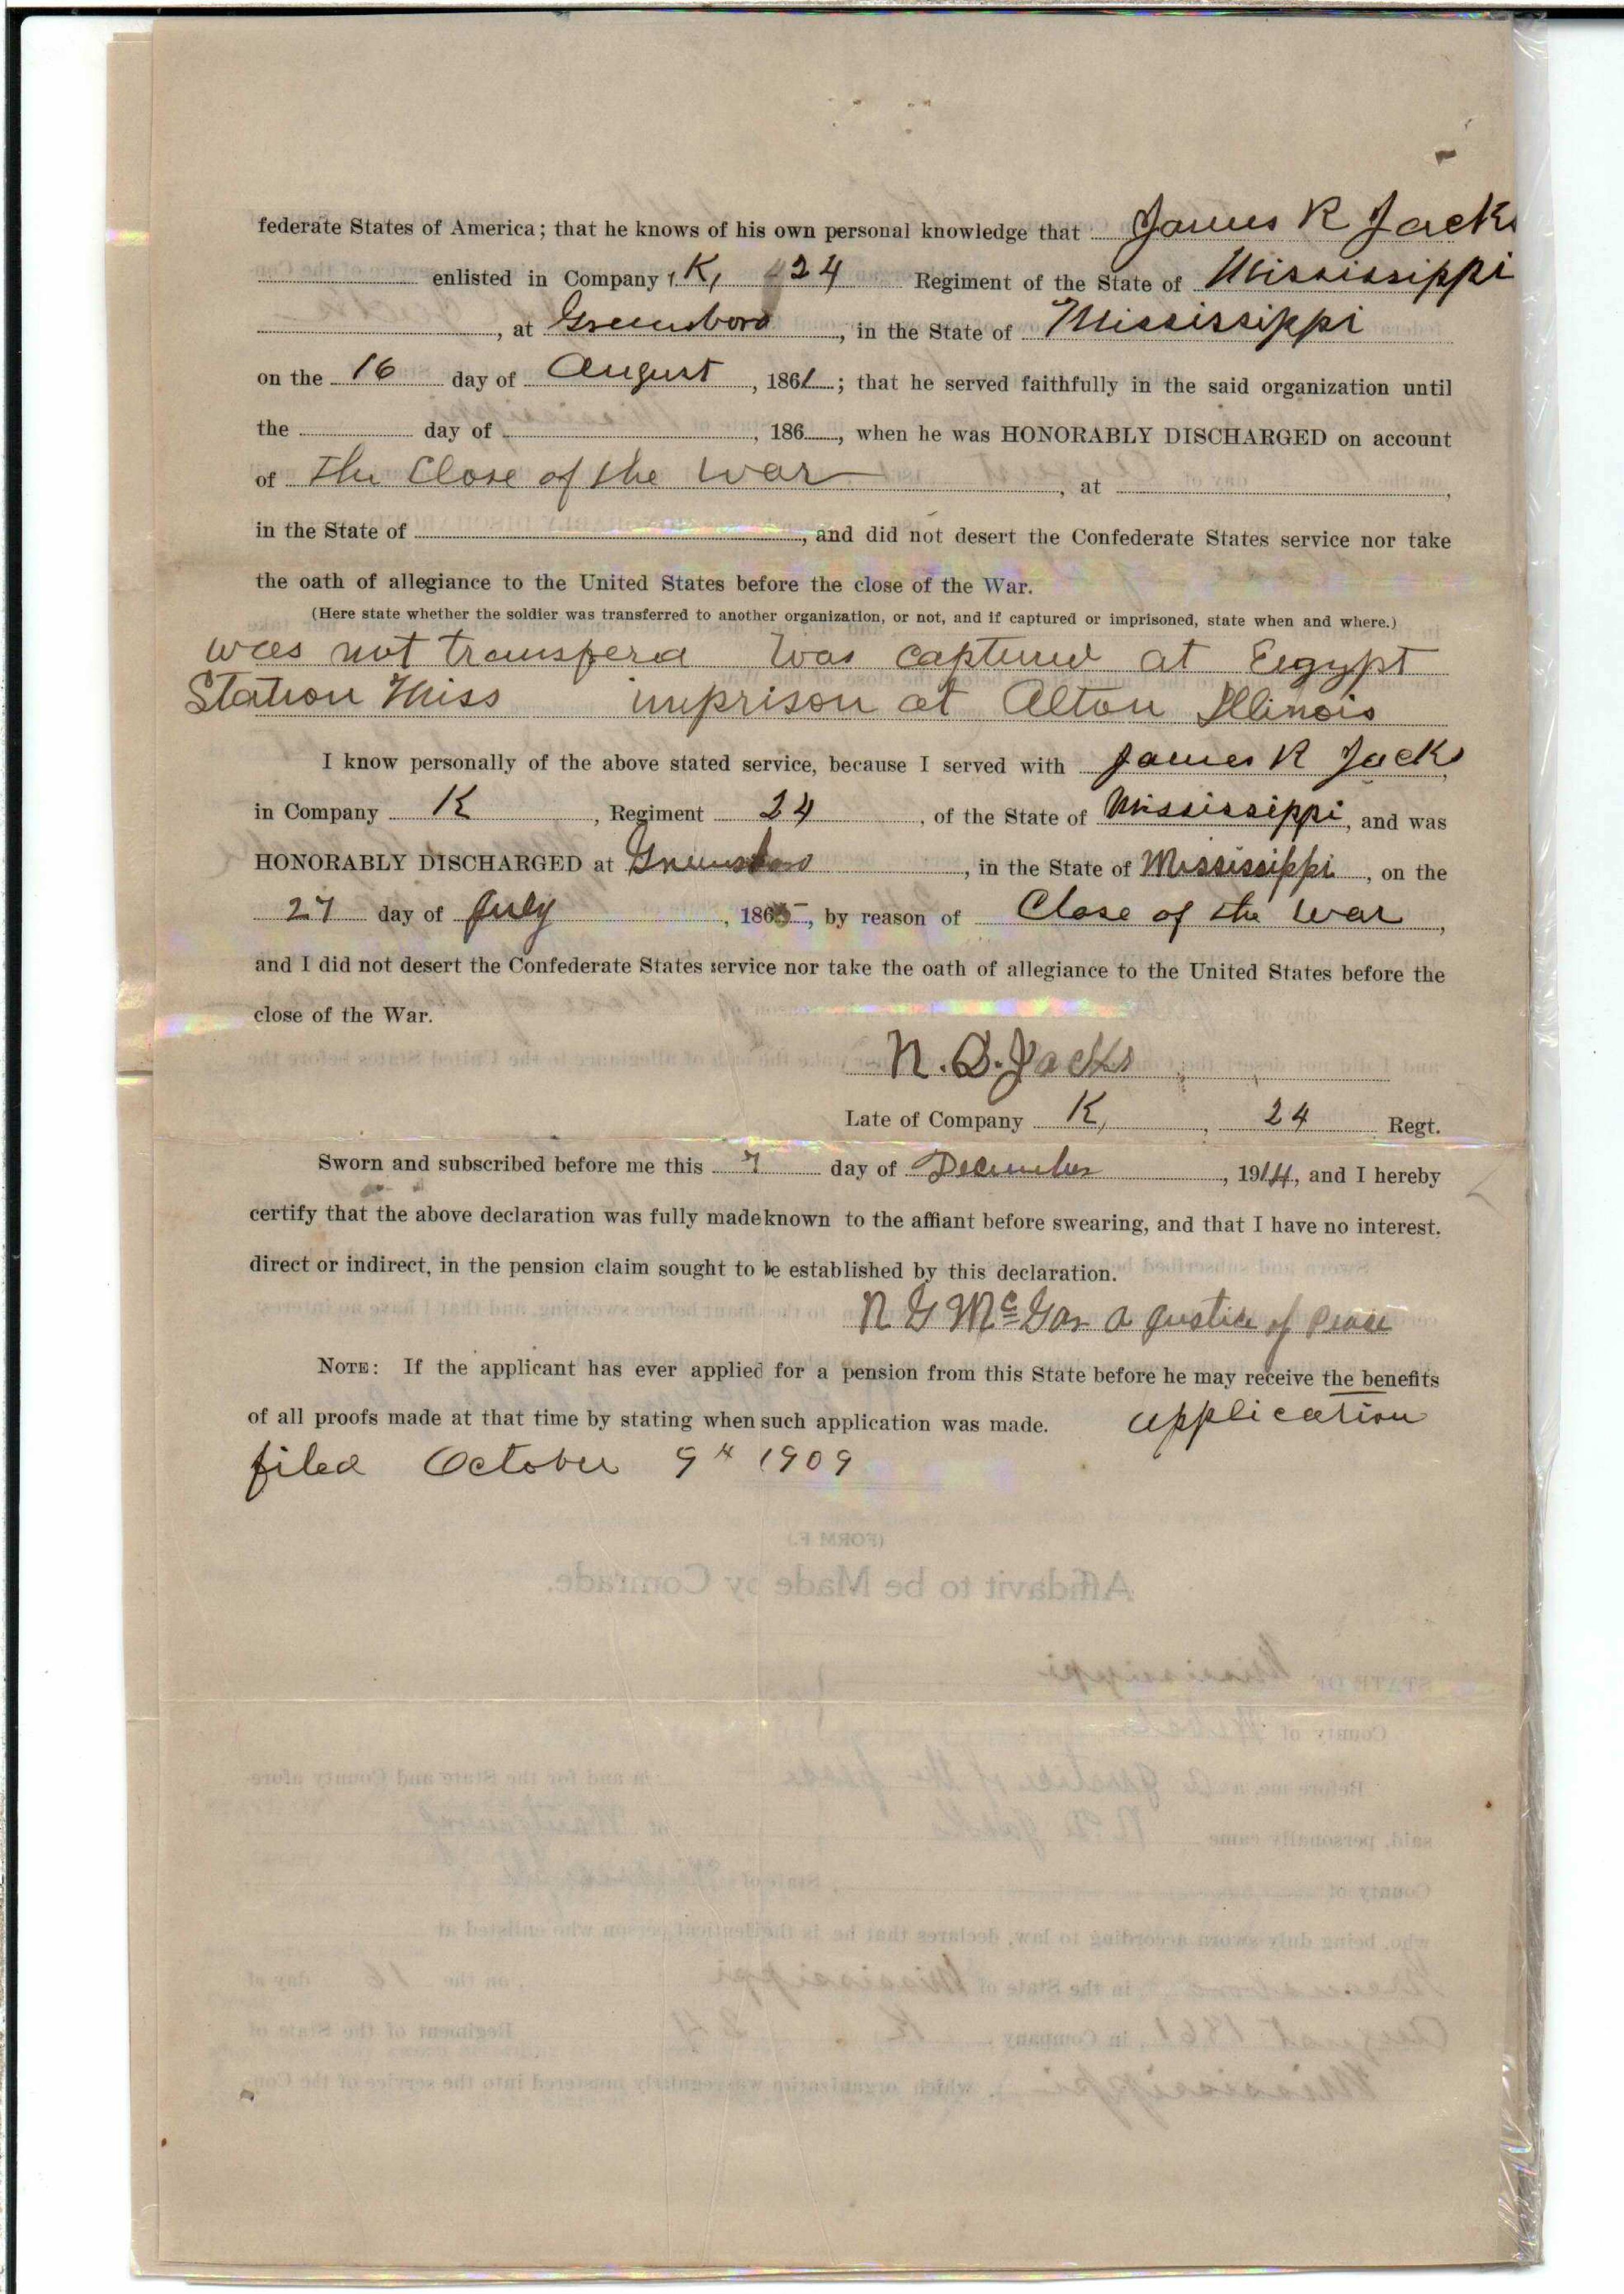 federate States of America; that he knows of his own personal knowledge that James R Jacks
enlisted in Company K, 24 Regiment of the State of Mississippi
, at Greensboro, in the State of Mississippi
on the 16 day of August, 1861; that he served faithfully in the said organization until
the day of , 186 , when he was HONORABLY DISCHARGED on account
of The Close of the war , at ,
in the State of , and did not desert the Confederate States service nor take
the oath of allegiance to the United States before the close of the War.
(Here state whether the soldier was transferred to another organization, or not, and if captured or imprisoned, state when and where.)
was not transferd Was captured at Eegypt
Station Miss imprison at Alton Illinois
I know personally of the above stated service, because I served with James R Jacks
in Company K, Regiment 24, of the State of Mississippi, and was
HONORABLY DISCHARGED at Greensboro, in the State of Mississippi, on the
27 day of July, 1865, by reason of Close of the War,
and I did not desert the Confederate States service nor take the oath of allegiance to the United States before the
close of the War.
N. B. Jacks
Late of Company K, 24 Regt.
Sworn and subscribed before me this 7 day of December, 1914, and I hereby
certify that the above declaration was fully made known to the affiant before swearing, and that I have no interest,
direct or indirect, in the pension claim sought to be established by this declaration.
N G a Justice of Peace
NOTE: If the applicant has ever applied for a pension from this State before he may receive the benefits
of all proofs made at that time by stating when such application was made. application
filed October 9th 1909
(FORM F.)
Affidavit to be Made by Comrade.